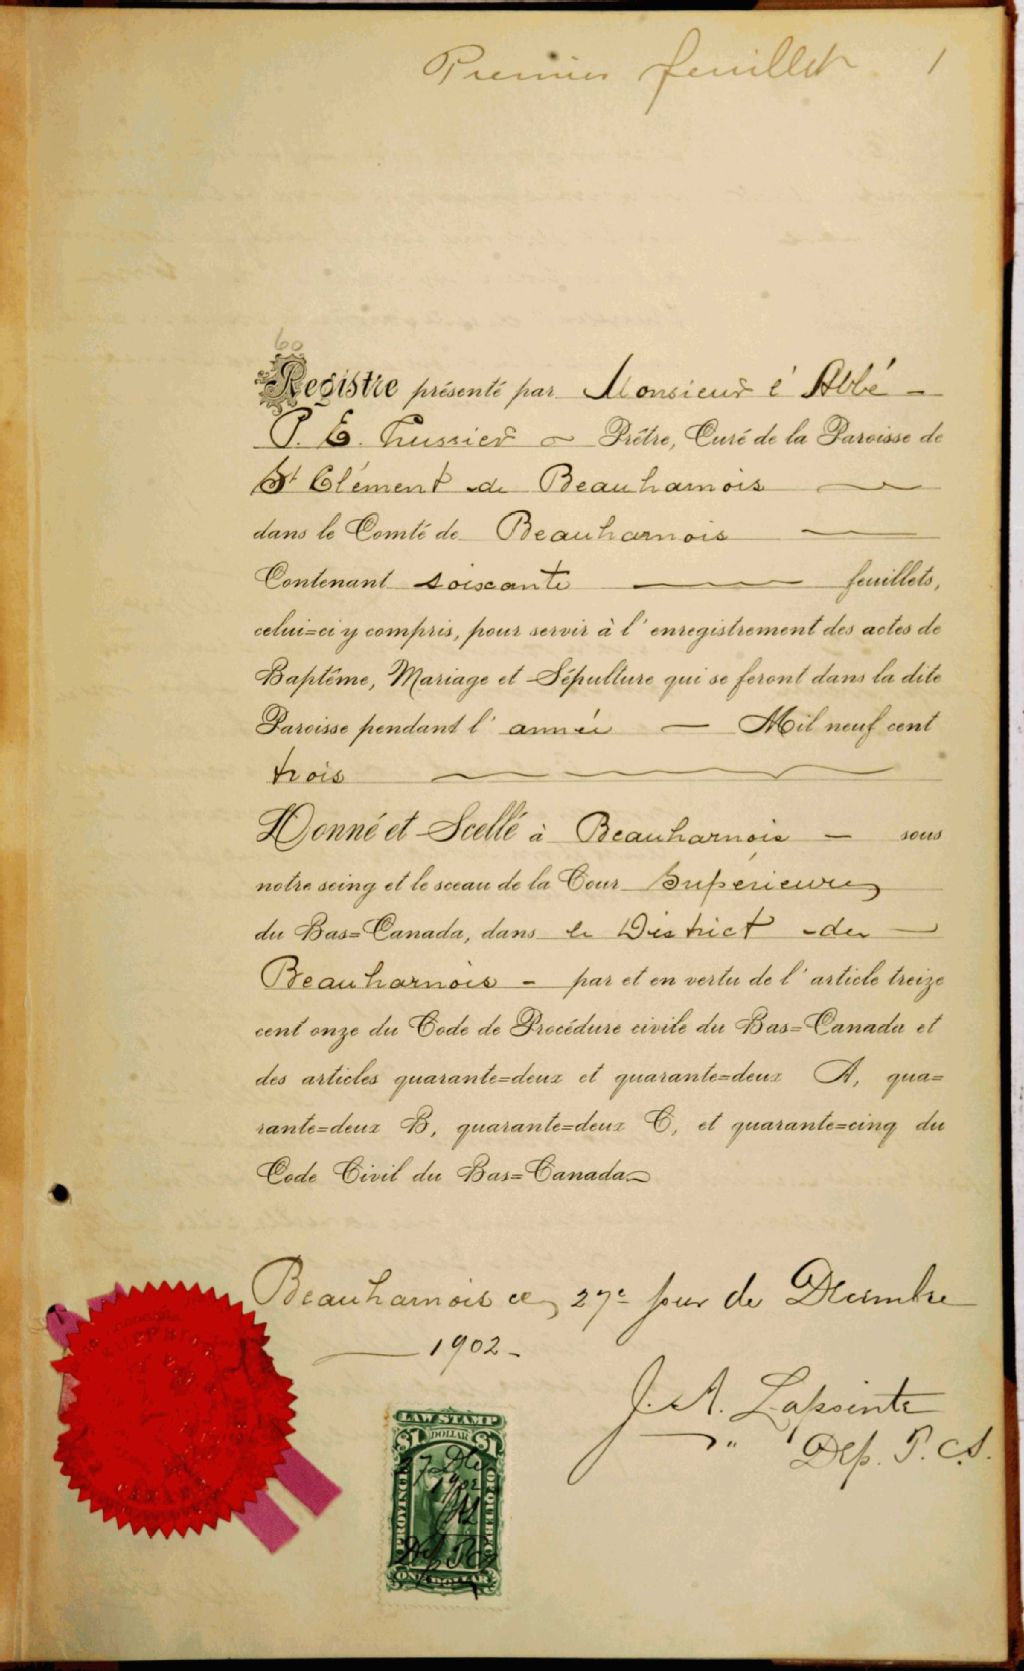 Premier feuillet 1
60
Registre présenté par Monsieur l'Abbé
P. E. Lussier Prêtre, Curé de la Paroisse de
St Clément de Beauharnois
dans le Comté de Beauharnois
Contenant soixante feuillets,
celui=ci y compris, pour servir à l'enregistrement des actes de
Baptême, Mariage et Sépulture qui se feront dans la dite
Paroisse pendant l'année Mil neuf cent
trois
Donné et Scellé à Beauharnois sous
notre seing et le sceau de la Cour Supérieure
du Bas=Canada, dans le District de
Beauharnois par et en vertu de l'article treize
cent onze du Code de Procédure civile du Bas=Canada et
des articles quarante=deux et quarante=deux A, qua=
rante=deux B, quarante=deux C, et quarante=cinq du
Code Civil du Bas=Canada
Beauharnois ce 27e jour de Décembre
1902
J. A. Lapointe
Dep. P. C. S.
LAW STAMP
$1 DOLLAR $1
PROVINCE OF QUEBEC
1902
ONE DOLLAR